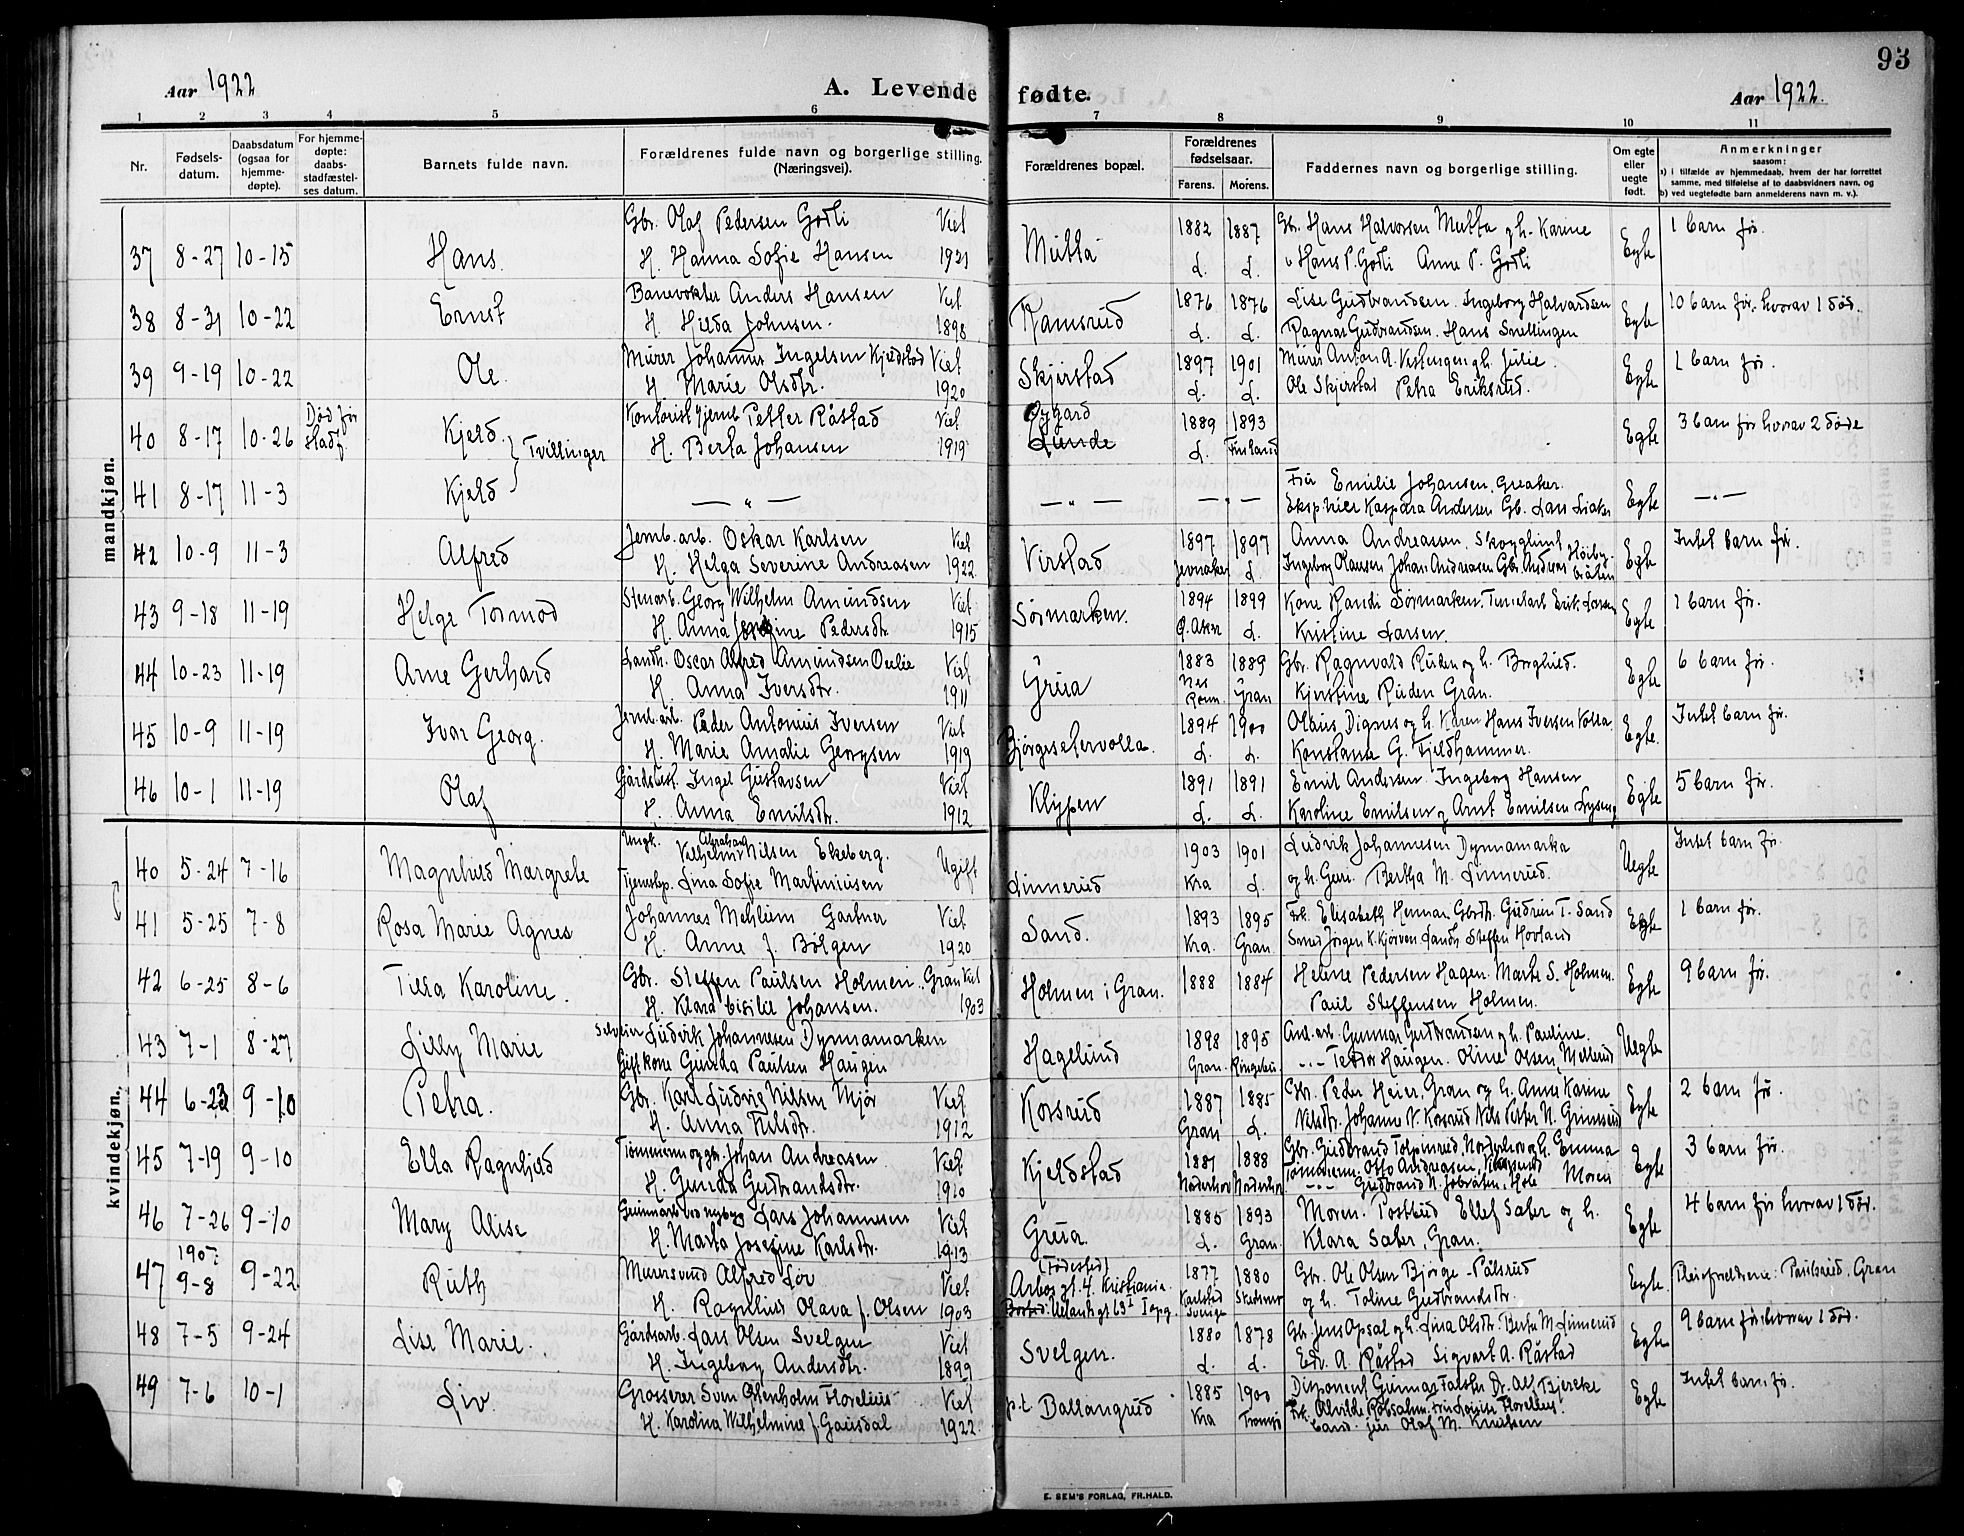 93
Aar 1922
A. Levende fødte.
Aar 1922.
1 2 3 4 5 6 7 8 9 10 11
Nr.
Fødsels-
datum.
Daabsdatum
(ogsaa for
hjemme-
døpte).
For hjemme-
døpte:
daabs-
stadfæstel-
ses datum.
Barnets fulde navn.
Forældrenes fulde navn og borgerlige stilling.
(Næringsvei).
Forældrenes bopæl.
Forældrenes
fødselsaar.
Farens. Morens.
Faddernes navn og borgerlige stilling.
Om egte
eller
uegte
født.
Anmerkninger
saasom:
a) i tilfælde av hjemmedaab, hvem der har forrettet
samme, med tilføielse af to daabsvidners navn, og
b) ved uegtefødte barn anmelderens navn m. v.).
mandkjøn.
Gbr. Olaf Pedersen Godli Viet 1882 1887 Gbr. Hans Halvorsen Mutta og h. Karine 1 barn før.
37 8-27 10-15 Hans. H. Hanna Sofie Hansen 1921 Mutta d. d. Hans P. Godli Anne P. Godli Egte
Banevokter Anders Hansen Viet 1876 1876 Lise Gudbrandsen. Ingeborg Halvardsen 10 barn før, hvorav 1 død.
38 8-31 10-22 Ernst H. Hilda Johnsen. 1898 Ramsrud d. d. Ragnar Gudbrandsen. Hans Snellingen Egte
Murer Johannes Ingelsen Kjeldstad Viet 1897 1901 Murer Anton A. Vestengen og h. Julie. 1 barn før.
39 9-19 10-22 Ole. H. Marie Olsdtr. 1920 Skjerstad d. d. Ole Skjerstad Petra Eriksrud. Egte
Død før Kontorist Petter Råstad Viet Øygard 1889 1893 3 barn før hvorav 2 døde
40 8-17 10-26 Stadf. Kjeld } Tvillinger H. Berta Johansen 1919 Lunde d. Finland Egte
Fru Emilie Johansen, Greaker.
41 8-17 11-3 Kjeld — " — — " — — " — Kaspara Andersen Gb. Lars Egte — " —
Jernb. arb. Oskar Karlsen Viet 1897 1897 Anna Andreasen, Skoyglint Intet barn før.
42 10-9 11-3 Alfred H. Helga Severine Andreasen 1922 Virstad Jevnaker d. Ingeborg Olausen Johan Andreasen Gbr. Andreas Egte
Stenarb. Georg Wilhelm Amundsen Viet 1894 1899 Kone Randi Sørmarken, Erik Larsen 1 barn før.
43 9-18 11-19 Helge Tormod H. Anna Pedersdtr. 1915 Sørmarken. Ø. Aker d. Kristine Larsen. Egte
Landh. Oscar Alfred Amundsen Viet 1883 1889 Gbr. Ragnvald Ruden og h. Borghild. 6 barn før.
44 10-23 11-19 Arne Gerhard H. Anna Iversdtr. 1911 Grua Nes Rom. Gran Kjerstine Ruden Gran. Egte
Jernb. arb. Peder Antonius Iversen Viet 1894 1900 Olaus Dignes og h. Karen Hans Iversen Volla Intet barn før.
45 10-9 11-19 Ivar Georg. H. Marie Amalie Georgsen 1919 Bjørgesetervolla. d. d. Konstanse G. Fjeldhammer. Egte.
Ingel Gustavsen Viet 1891 1891 Emil Andersen. Ingeborg Hansen 5 barn før.
46 10-1 11-19 Olaf H. Anna Emilsdtr. 1912 Klyppen d. d. Karoline Emilsen og Arnt Emilsen Egte
kvindekjøn.
Ungk. Vilhelm Abraham Nilsen Ekeberg. 1903 1901 Ludvik Johannesen Dynnamarka Intet barn før.
40 5-24 7-16 Magnhild Margrete Tjenestep. Lina Sofie Martiniusen Ugift Linnerud Kra d. og h. Guri. Bertha M. Linnerud. Uegte
Johannes Mehlum Gartner Viet 1893 1895 Frk. Elisabeth Herman Gudrun T. Sand 1 barn før.
41 5-25 7-8 Rosa Marie Agnes H. Anne f. Bølgen 1920 Sand. Kra. Gran Smed Jørgen K. Kjørven Landh. Steffen Hovland Egte
Gbr. Steffen Paulsen Holmen. Gran Viet 1888 1884 Helene Pedersen Hagen. Marte S. Holmen. 9 barn før.
42 6-25 8-6 Tilla Karoline. H. Klara Cisilie Johansen. 1903 Holmen i Gran. Paul Steffensen Holmen. Egte
Ludvik Johannesen Dynnamarken 1898 1895 Anl. arb. Gunnar Gudbrandsen og h. Pauline.
43 7-1 8-27 Lilly Marie Gift kone Gunda Paulsen Haugen Hagelund Gran. Ringebu - " - Teodor Haugen. Oline Olsen, Mellerud Uegte
Gbr. Karl Ludvig Nilsen Mjør Viet 1887 1885 Gbr. Peder Heier, Gran og h. Anne Karine 2 barn før.
44 6-23 9-10 Petra. H. Anna Nilsdtr. 1912 Korsrud Gran d. Nilsdtr. Johanne N. Korsrud Nils Peter N. Grinnerud Egte
Tømmerm. og gbr. Johan Andreasen Viet 1881 1888 Gbr. Gudbrand Tolpinrud, Norderhov og h. Emma 3 barn før.
45 7-19 9-10 Ella Ragnhild H. Gunda Gudbrandsdtr. 1910 Kjeldstad Norderhov Norderhov Tømmerm. Otto Andreasen, Moren Egte
- " - Gudbrand N. Hole
Lars Johannesen Viet 1885 1893 Moren. Postbud Ellef Sater og h. 4 barn før hvorav 1 død.
46 7-26 9-10 Mary Alise H. Marta Josefine Karlsdtr. 1913 Grua. d. Gran. Klara Sater, Gran. Egte
1907: Murersvend Alfred Löv Viet (Fødested) 1877 1880 Gbr. Ole Olsen Bjørge-Pålsrud Pleieforeldrene: Paulsrud, Gran
47 9-8 9-22 Ruth H. Ragnhild Olava f. Olsen 1903 Arbos gt. 4. Kristiania. Karlstad Sverige Skedsmo og h. Toline Gudbrandsdtr. Egte.
Bosted: gt 63 I opg.
Gårdsarb. Lars Olsen Svelgen Viet 1880 1878 Gbr. Jens Opsal og h. Lina Olsdtr. Berte M. Linnerud 9 barn før, hvorav 1 død.
48 7-5 9-24 Lise Marie. H. Ingeborg Andersdtr. 1899 Svelgen. d. d. Edv. A. Råstad Sigvart A. Råstad Egte
Grosserer Sven Florelius Viet 1885 1900 Disponent Gunnar Dr. Alf Bjercke Intet barn før.
49 7-6 10-1 Liv. H. Karolina Wilhelmine f. Gausdal 1922. p.t Ballangrud Kra Tromsø Frk. Alvilde Robsahm. Fru Louise Florelius. Egte
Cand. jur Olaf M. Knudsen
E. SEM'S FORLAG, FR.HALD.